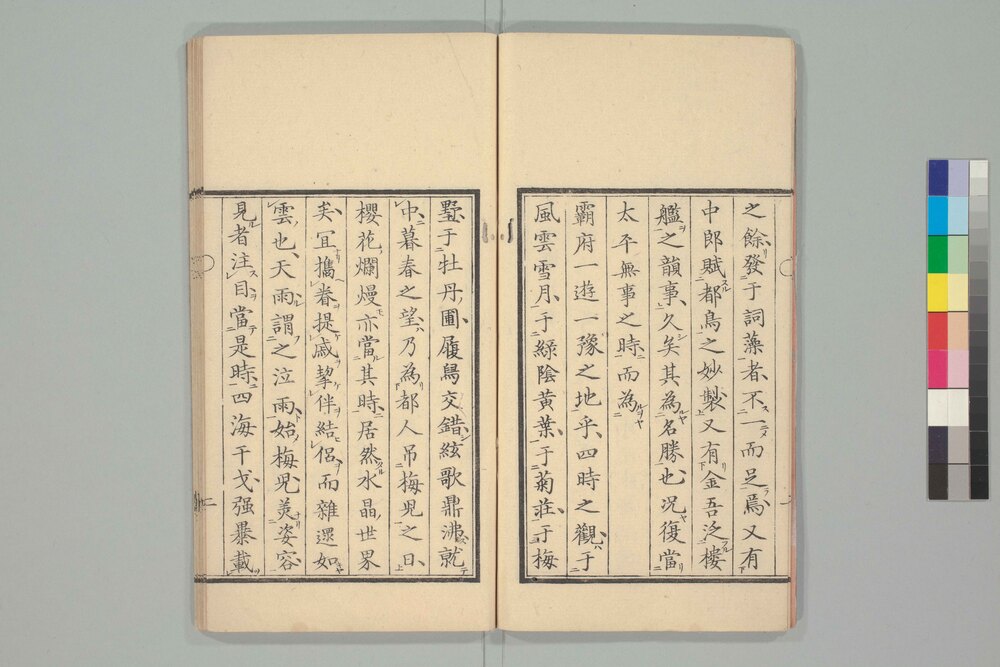 之餘發于詞藻者不一而足焉又有
中郎賦都鳥之妙製又有金吾泛樓
艦之韻事久矣其為名勝也况復當
太平無事之時而為
霸府一遊一豫之地乎四時之觀于
風雲雪月于綠陰黃葉于菊莊于梅
墅于牡丹圃履舃交錯絃歌鼎沸就
中暮春之望乃為都人吊梅兒之日
櫻花爛熳亦當其時居然水晶世界
矣冝擕眷提戚挈伴結侶而雜遝如
雲也天雨謂之泣雨始梅兒美姿容
見者注目當是時四海干戈强暴載
二